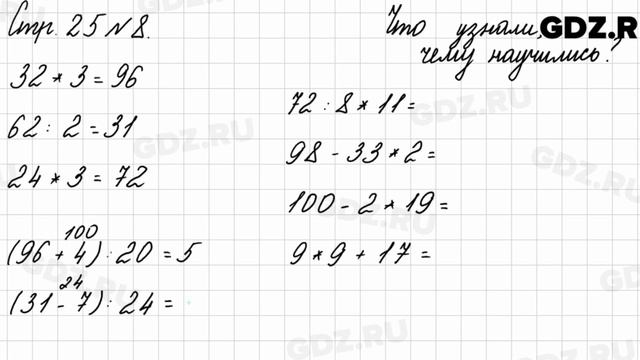 Стр. 25 № 8.
Что узнали,
чему научились?
GDZ.R
32 * 3 = 96
62 : 2 = 31
24 * 3 = 72
100
(96 + 4) : 20 = 5
24
(31 - 7) : 24 =
72 : 8 * 11 =
98 - 33 * 2 =
100 - 2 * 19 =
9 * 9 + 17 =
GDZ.RU
GDZ.RU
GDZ.RU
GDZ.RU
GDZ.RU